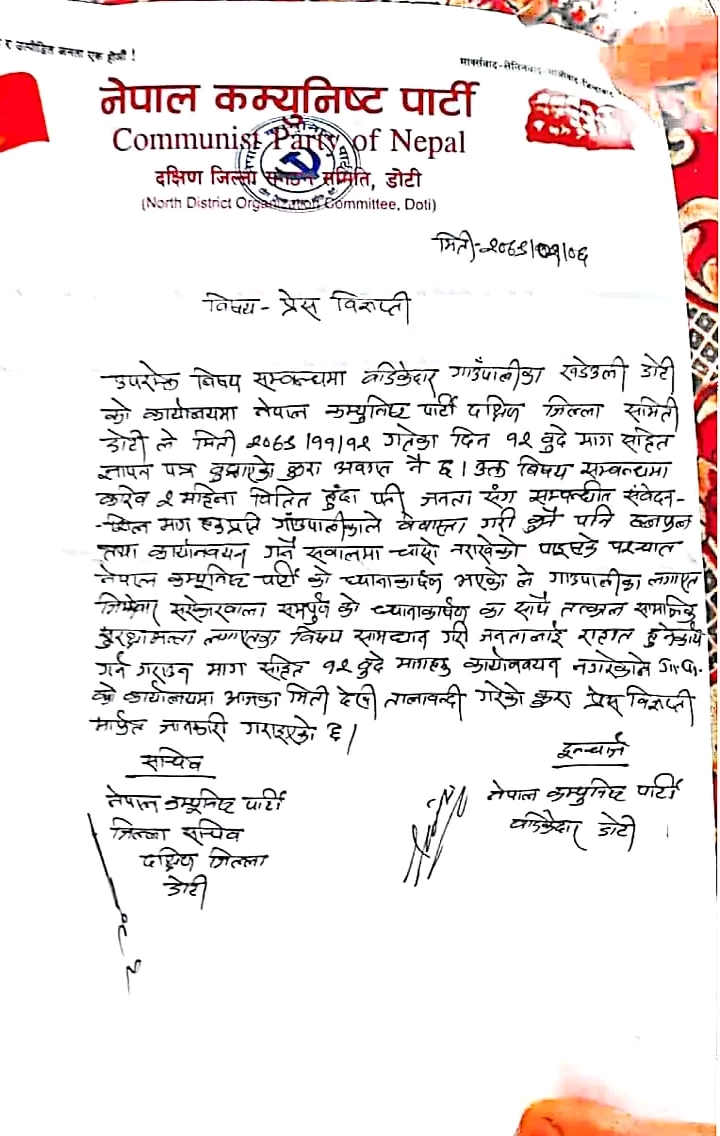 र उत्पीडित जनता एक होऔं !
मार्क्सवाद-लेनिनवाद-माओवाद-जिन्दावाद
नेपाल कम्युनिष्ट पार्टी
Communist Party of Nepal
दक्षिण जिल्ला संगठन समिति, डोटी
(North District Organization Committee, Doti)
मिती-२०७९/०१/०६
विषय - प्रेस विज्ञप्ती
उपरोक्त विषय सम्वन्धमा वडिकेदार गाउँपालीका खडेउली डोटी
को कार्यालयमा नेपाल कम्युनिष्ट पार्टी दक्षिण जिल्ला समिती
डोटी ले मिती २०७८/११/१२ गतेका दिन १२ वुदे माग सहित
ज्ञापन पत्र वुझाएको कुरा अवगत नै छ। उक्त बिषय सम्वन्धमा
करिव २ महिना वितित हुंदा पनी जनता संग सम्वन्धीत संवेदन-
-शिल माग हरुप्रति गाँउपालीकाले वेवास्ता गरी कुनै पनि छलफल
तथा कार्यान्वयन गर्ने सवालमा चासो नराखेको पश्चात
नेपाल कम्युनिष्ट पार्टी को ध्यानाकर्षण भएको ले गाउपालीका लगाएत
जिम्मेवार सरोकारवाला सम्पुर्ण को ध्यानाकर्षण का साथै तत्काल सामाजिक
सुरक्षाभत्ता लगाएतका विषय समाधान गरी जनतालाई राहत हुनेकार्य
गर्न गराउन माग सहित १२ वुदे मागहरु कार्यान्वयन नगरेकोले गा.पा.
को कार्यालयमा आजका मिती देखी तालावन्दी गरेको कुरा प्रेस विज्ञप्ती
मार्फत जानकारी गराइएको छ।
सचिव
नेपाल कम्युनिष्ट पार्टी
जिल्ला सचिव
दक्षिण जिल्ला
डोटी
इन्चार्ज
नेपाल कम्युनिष्ट पार्टी
वडिकेदार डोटी